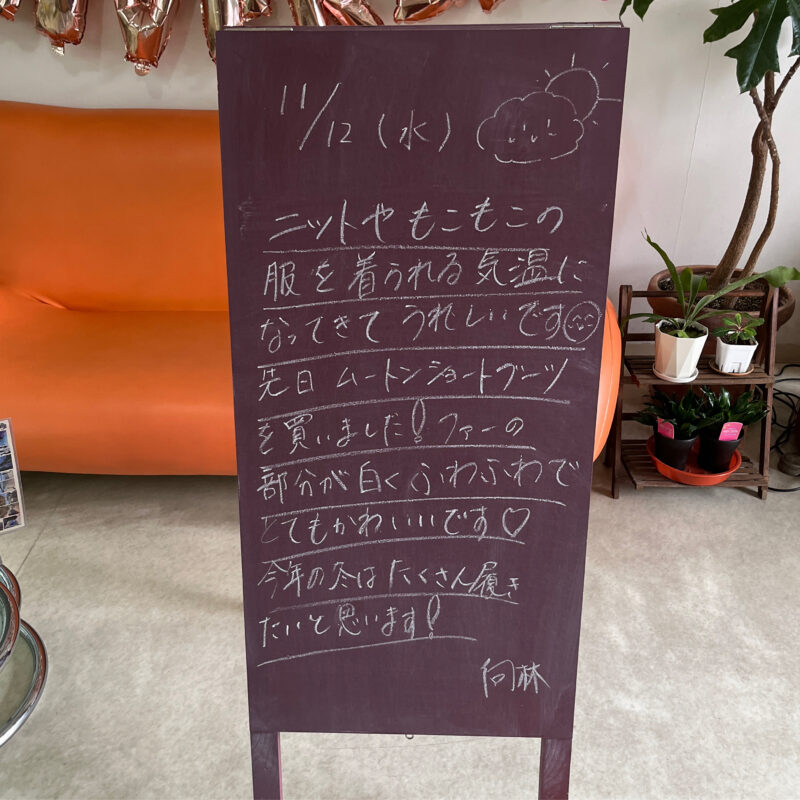 11/12(水)
ニットや もこもこの
服を着られる気温に
なってきて うれしいです
先日 ムートンショートブーツ
を買いました! ファーの
部分が白く ふわふわで
とてもかわいいです♡
今年の冬は たくさん履き
たいと思います!
向林